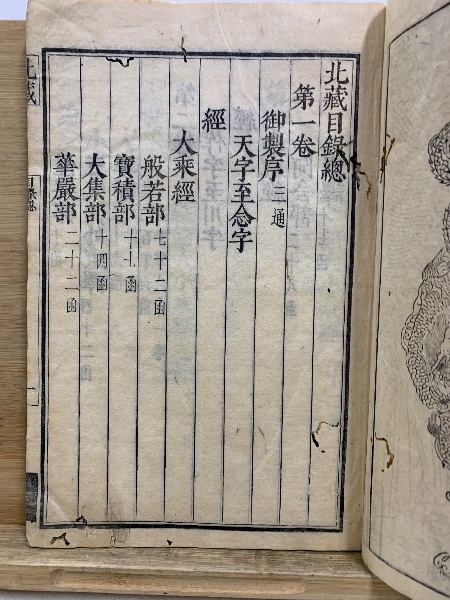 北藏目錄總
第一卷
御製序三通
天字至念字
經
大乘經
般若部七十二函
寶積部十七函
大集部十四函
華嚴部二十二函
北藏
目錄總
一